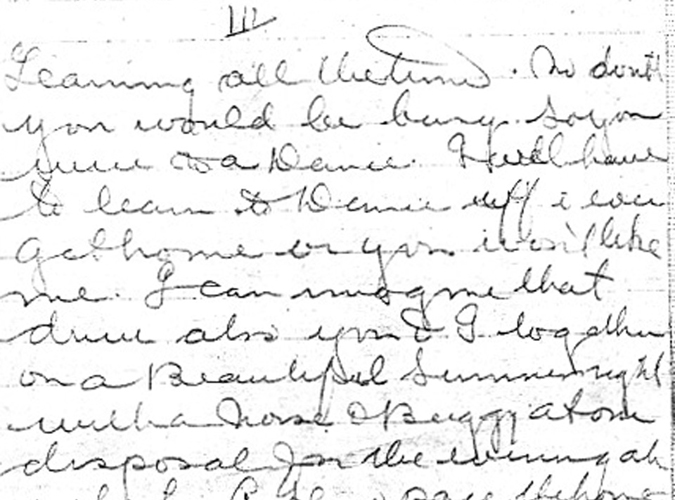 III
Learning all the time. No doubt
you would be busy. So you
were to a Dance. I will have
to learn to Dance if i ever
get home or you won't like
me. I can imagine that
drive also you & I together
on a Beautiful Summer night
with a horse & Buggy at our
disposal In the evening ah